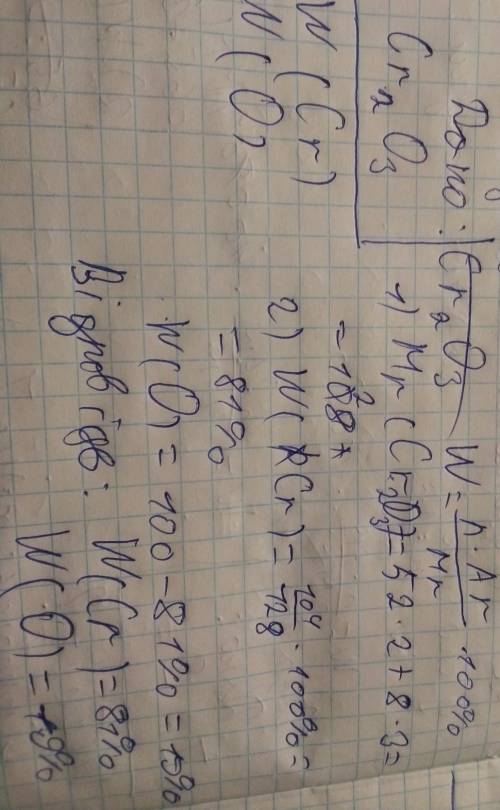 Дано:
Cr₂O₃
W(Cr)
W(O)
Cr₂O₃ W = n·Ar / Mr 100%
1) Mr(Cr₂O₃) = 52·2 + 8·3 =
= 128
2) W(Cr) = 104/128 · 100% =
= 81%
W(O) = 100 - 81% = 19%
Відповідь: W(Cr) = 81%
W(O) = 19%